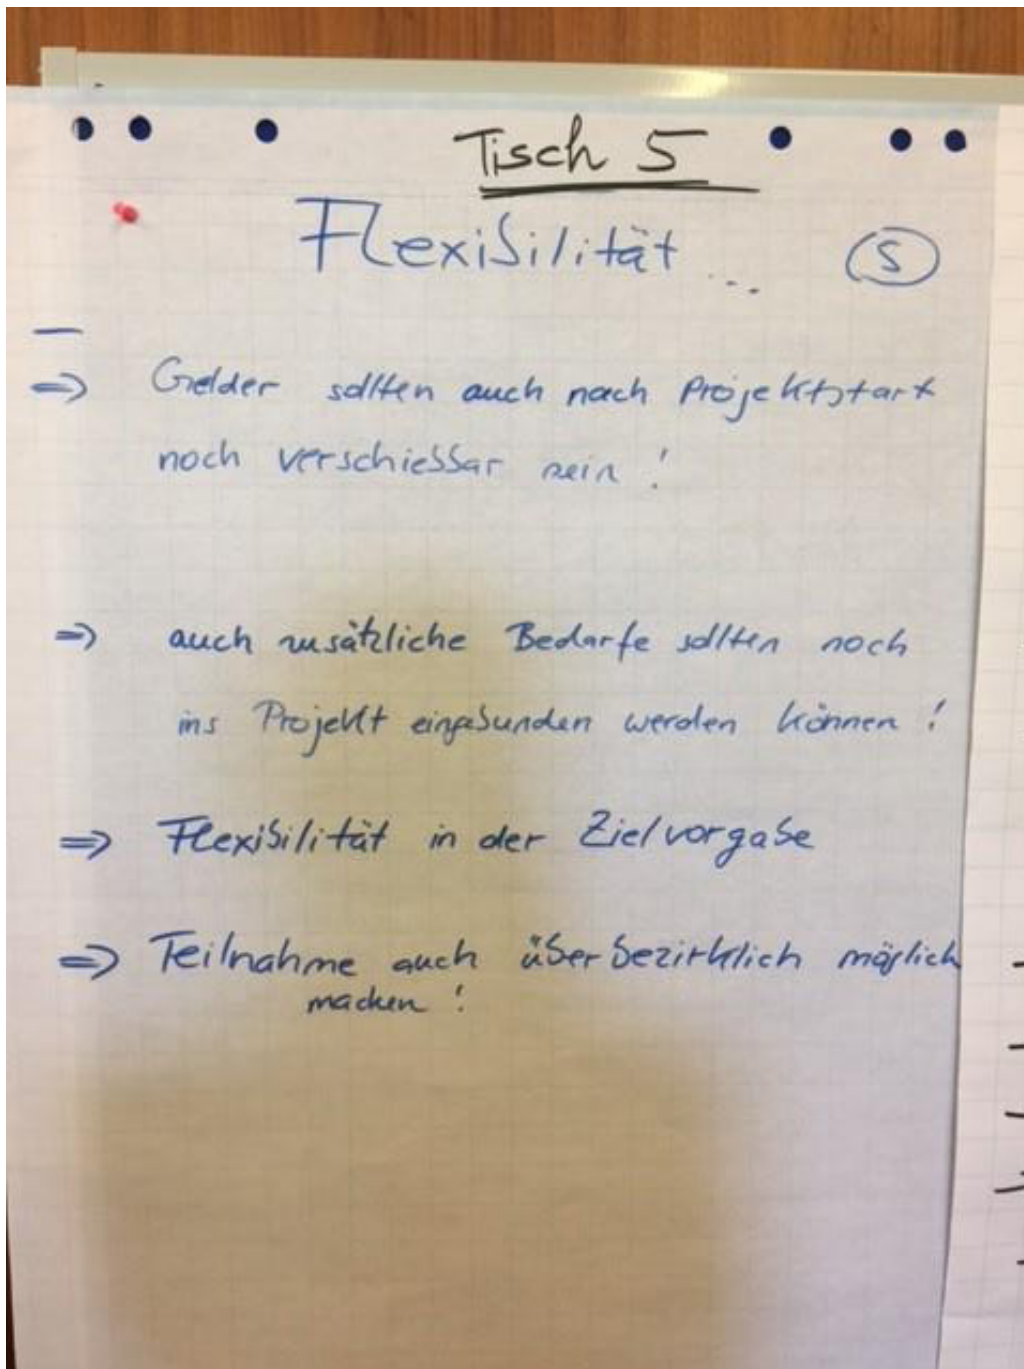 Tisch 5
Flexibilität... 5
⇒ Gelder sollten auch nach Projektstart
noch verschiebbar sein!
⇒ auch zusätzliche Bedarfe sollten noch
ins Projekt eingebunden werden können!
⇒ Flexibilität in der Zielvorgabe
⇒ Teilnahme auch überbezirklich möglich
machen!